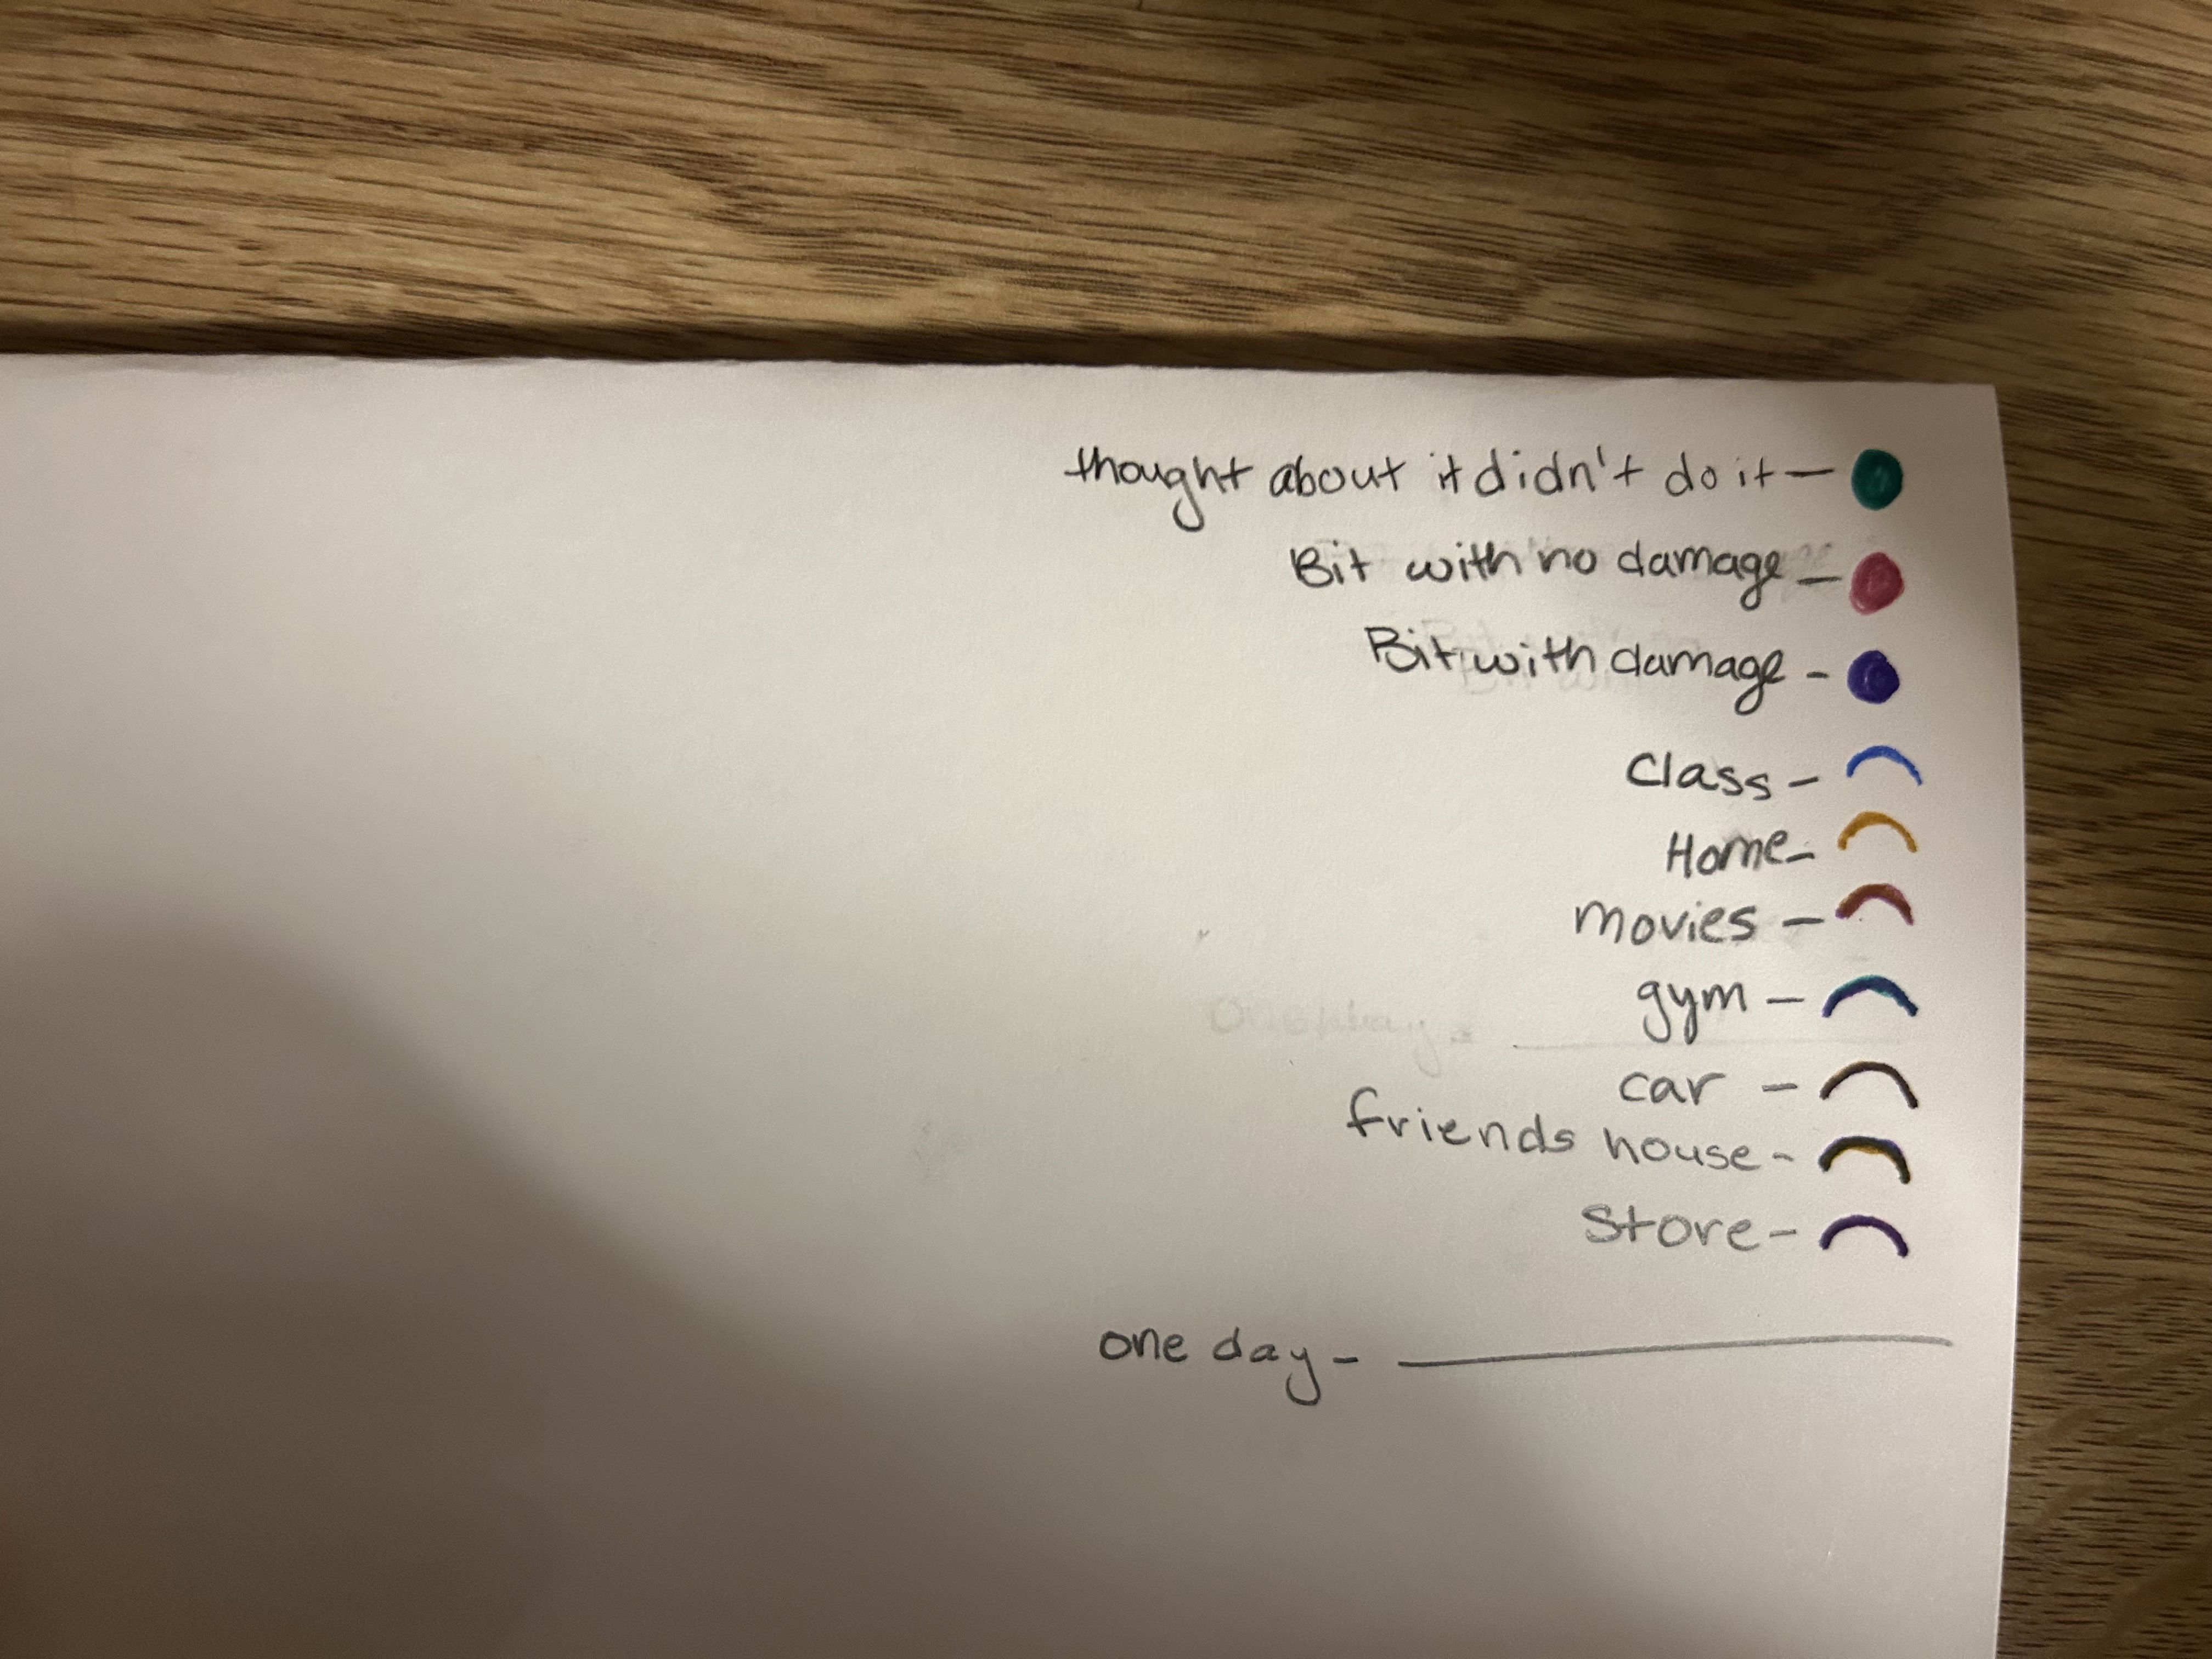 thought about it didn't do it —
Bit with no damage —
Bit with damage -
Class -
Home -
movies —
gym —
car —
friends house -
Store -
one day -